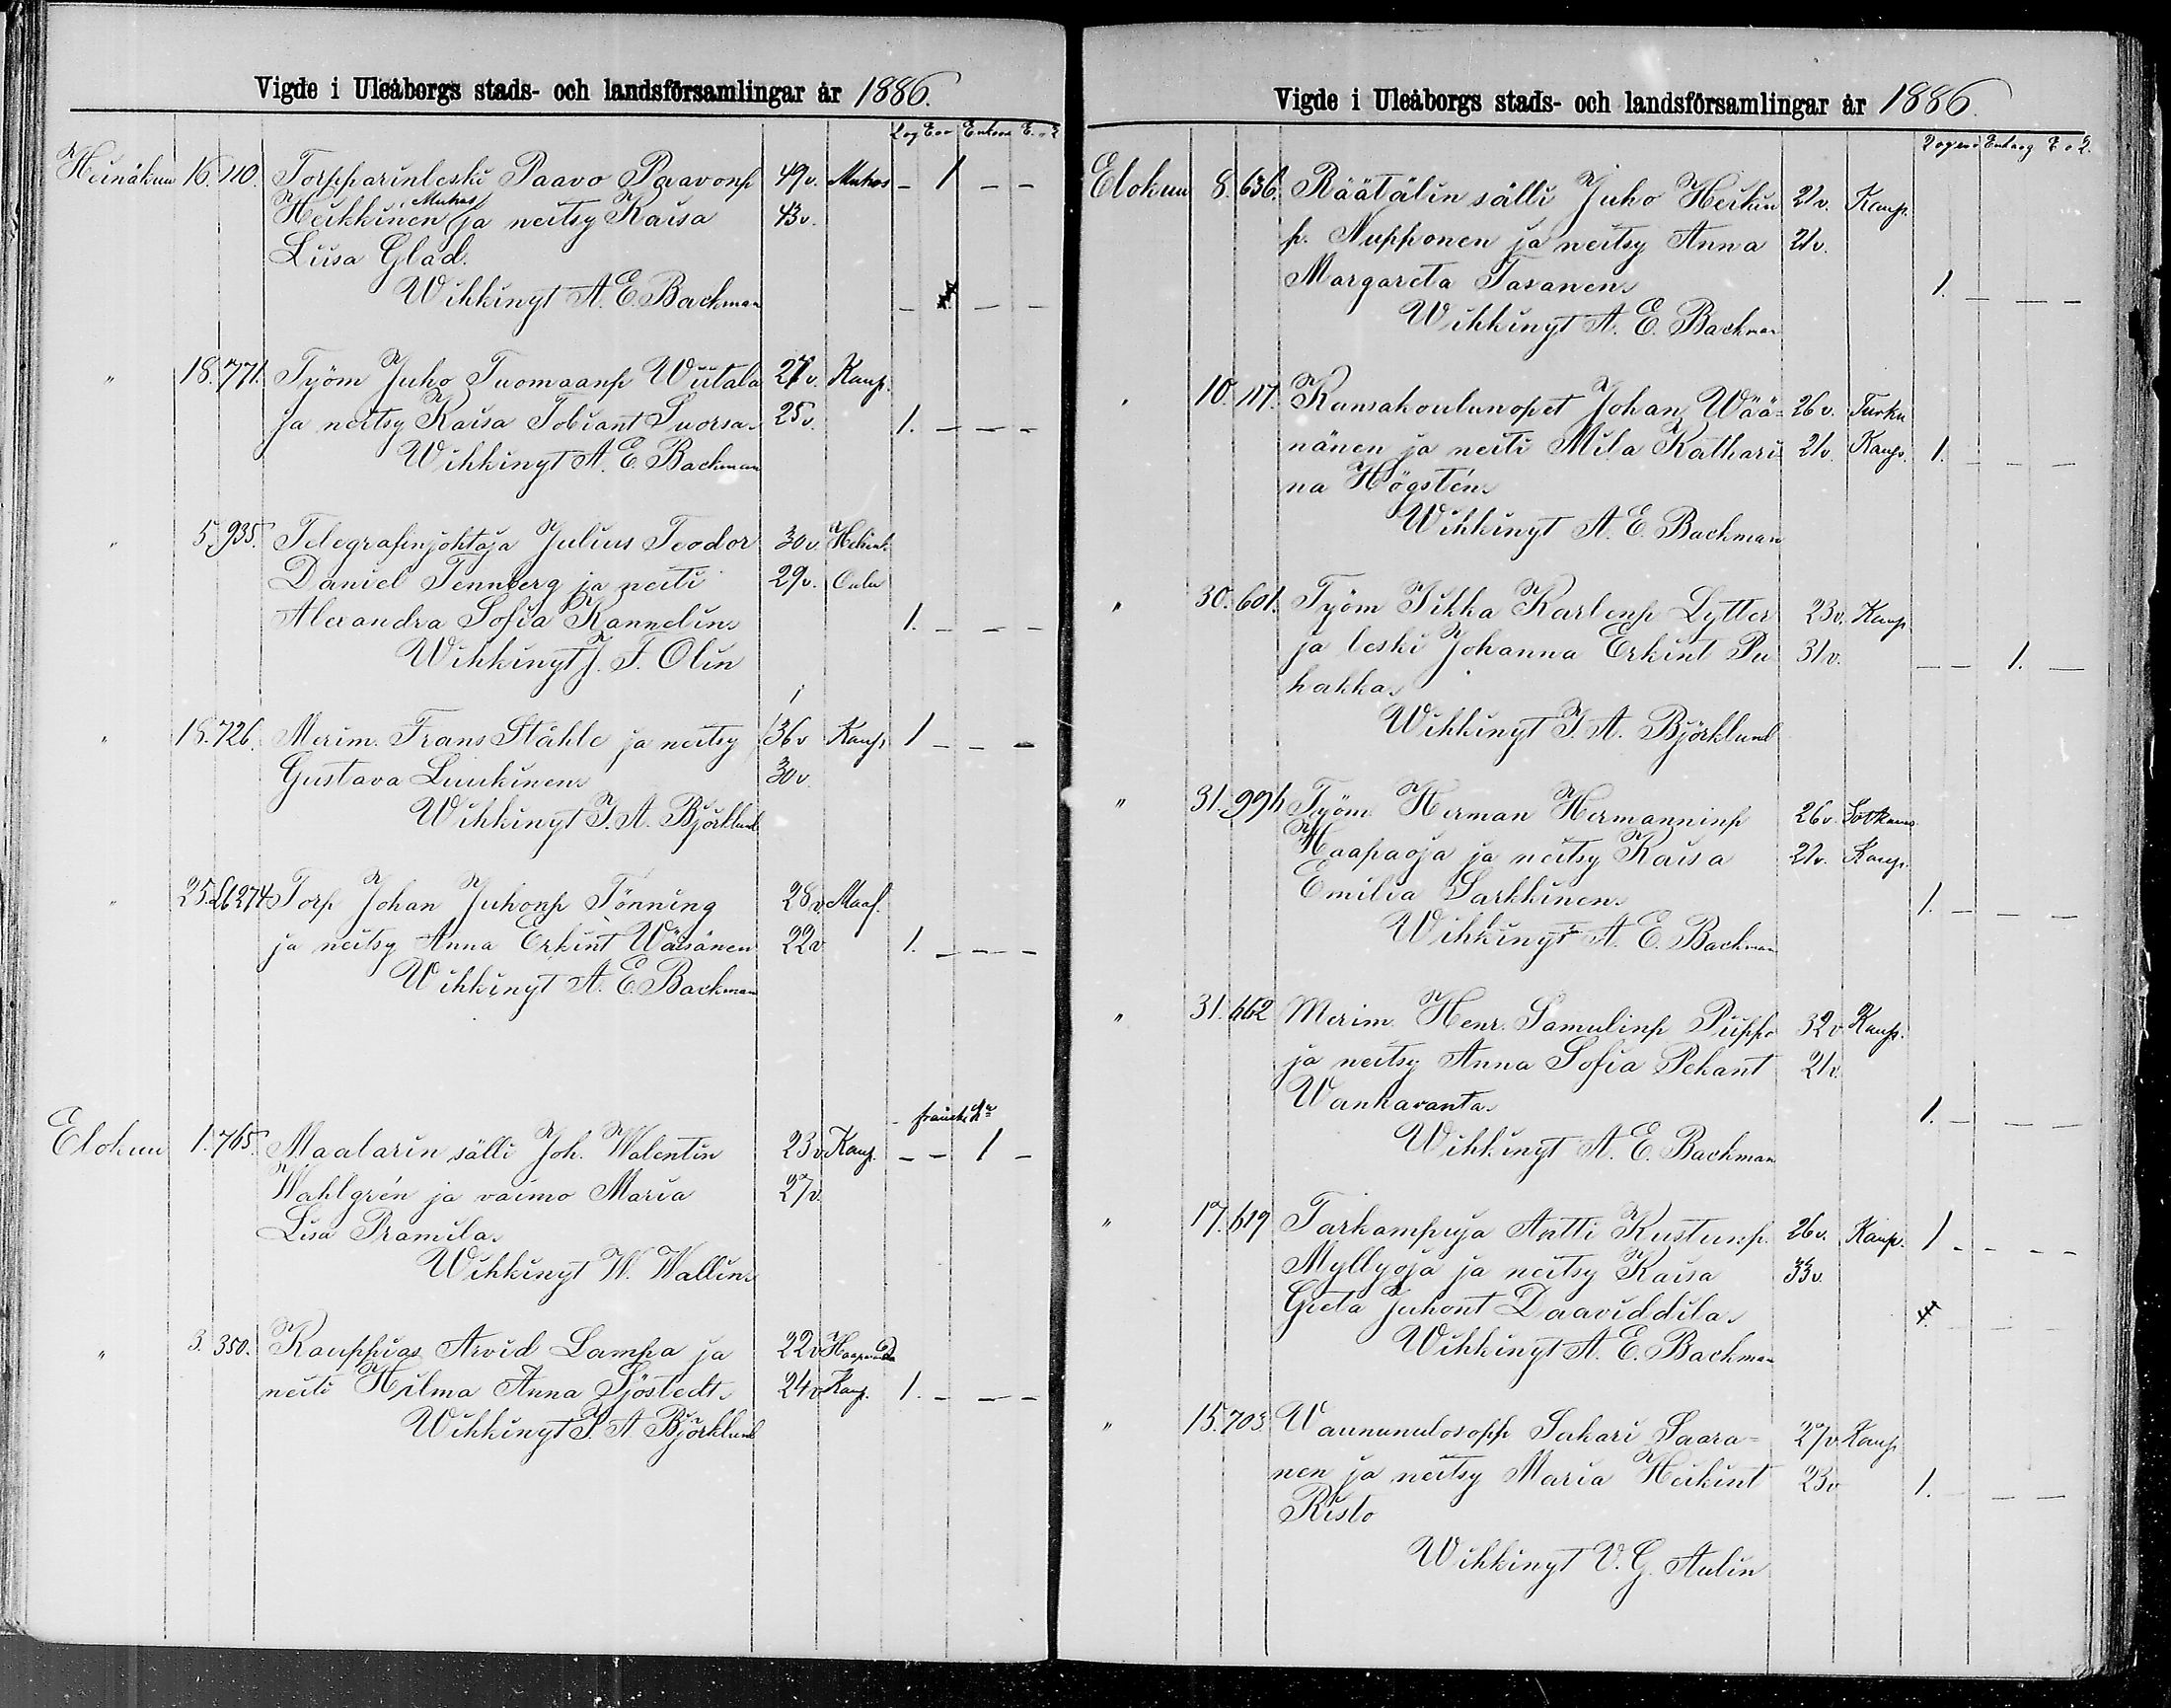 Vigde i Uleåborgs stads- och landsförsamlingar år 1886.
Heinäkuu 16. 110. Torpparinleski Paavo Paavonp 49v. Muhos - 1 - -
Heikkinen (Muhos) ja neitsy Kaisa 43v.
Liisa Glad.
Wihkinyt A. E. Backman
" 18. 771. Työm Juho Tuomaanp Wiitala 27v. Kaup.
ja neitsy Kaisa Tobiant Suorsa. 25v. 1. - - -
Wihkinyt A. E. Backman
" 5. 935. Telegrafinjohtaja Julius Teodor 30v. Helsink.
Daniel Tennberg ja neiti 29v. Oulu
Alexandra Sofia Kannelin. 1. - - -
Wihkinyt J. F. Olin
" 18. 726. Merim. Frans Ståhle ja neitsy 36v Kaup. 1 - - -
Gustava Luukinen. 30v.
Wihkinyt J. A. Björklund
" 25. L6 274 Torp Johan Juhonp Tönning 28v. Maas.
ja neitsy Anna Erkint Wäisänen 22v 1. - - -
Wihkinyt A. E. Backman
Elokuu 1. 765. Maalarin sälli Joh. Walentin 23v Kaup. - - 1 -
Wahlgrén ja vaimo Maria 27v.
Lisa Pramila.
Wihkinyt W. Wallin.
" 3. 350. Kauppias Arvid Lampa ja 22v Haaparanda
neiti Hilma Anna Sjöstedt. 24v Kaup. 1. - - -
Wihkinyt J. A. Björklund
Vigde i Uleåborgs stads- och landsförsamlingar år 1886.
Elokuu 8. 636. Räätälin sälli Juho Heikin 21v. Kaup.
p. Nupponen ja neitsy Anna 21v.
Margareta Tasanen. 1. - - -
Wihkinyt A. E. Backman
" 10. 117. Kansakoulunopet Johan Wää= 26v. Turku
nänen ja neiti Mila Kathari 21v. Kaup. 1. - - -
na Högstén.
Wihkinyt A. E. Backman
" 30. 601. Työm Iikka Karlenp Lytter 23v. Kaup
ja leski Johanna Erkint Pu 31v. - - 1. -
hakka.
Wihkinyt J. A. Björklund
" 31. Työm Herman Hermanninp 26v. Sotkamo
Haapaoja ja neitsy Kaisa 21v. Kaup.
Emilia Sarkkinen. 1. - - -
Wihkinyt A. E. Backman
" 31. 662 Merim. Henr. Samulinp Puppo 32v Kaup.
ja neitsy Anna Sofia Pekant 21v.
Wankavanta. 1. - - -
Wihkinyt A. E. Backman
" 17. 619 Tarkampuja Antti Kustunp. 26v. Kaup. 1 - - -
Myllyoja ja neitsy Kaisa 33v.
Greta Juhont Daaviddila.
Wihkinyt A. E. Backman
" 15. 703. Waununulosopp Sakari Saara= 27v. Kaup
nen ja neitsy Maria Heikint 23v 1. - - -
Risto
Wihkinyt V. G. Aulin